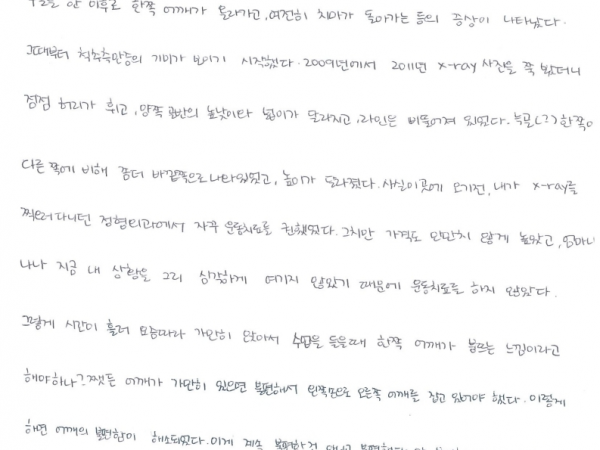 안 이후로 한쪽 어깨가 올라가고, 여전히 치마가 돌아가는 등의 증상이 나타났다.
그때부터 척추측만등의 기미가 보이기 시작했다. 2009년에서 2011년 x-ray 사진을 쭉 봤더니
점점 허리가 휘고, 양쪽 골반의 높낮이나 넓이가 달라지고, 라인은 비뚤어져 있었다. 늑골(?) 한쪽이
다른 쪽에 비해 좀더 바깥쪽으로 나타있었고, 높이가 달라졌다. 사실 이곳에 오기전, 내가 x-ray를
찍으러 다니던 정형외과에서 자꾸 운동치료를 권했었다. 그치만 가격도 만만치 않게 높았고, 엄마나
나나 지금 내 상황을 그리 심각하게 여기지 않았기 때문에 운동치료를 하지 않았다.
그렇게 시간이 흘러 요즘따라 가만히 앉아서 수업을 들을때 한쪽 어깨가 붕뜨는 느낌이라고
해야하나? 쨋든 어깨가 가만히 있으면 불편해서 왼쪽손으로 오른쪽 어깨를 잡고 있어야 했다. 이렇게
하면 어깨의 불편함이 해소되었다. 이게 계속 불편하건